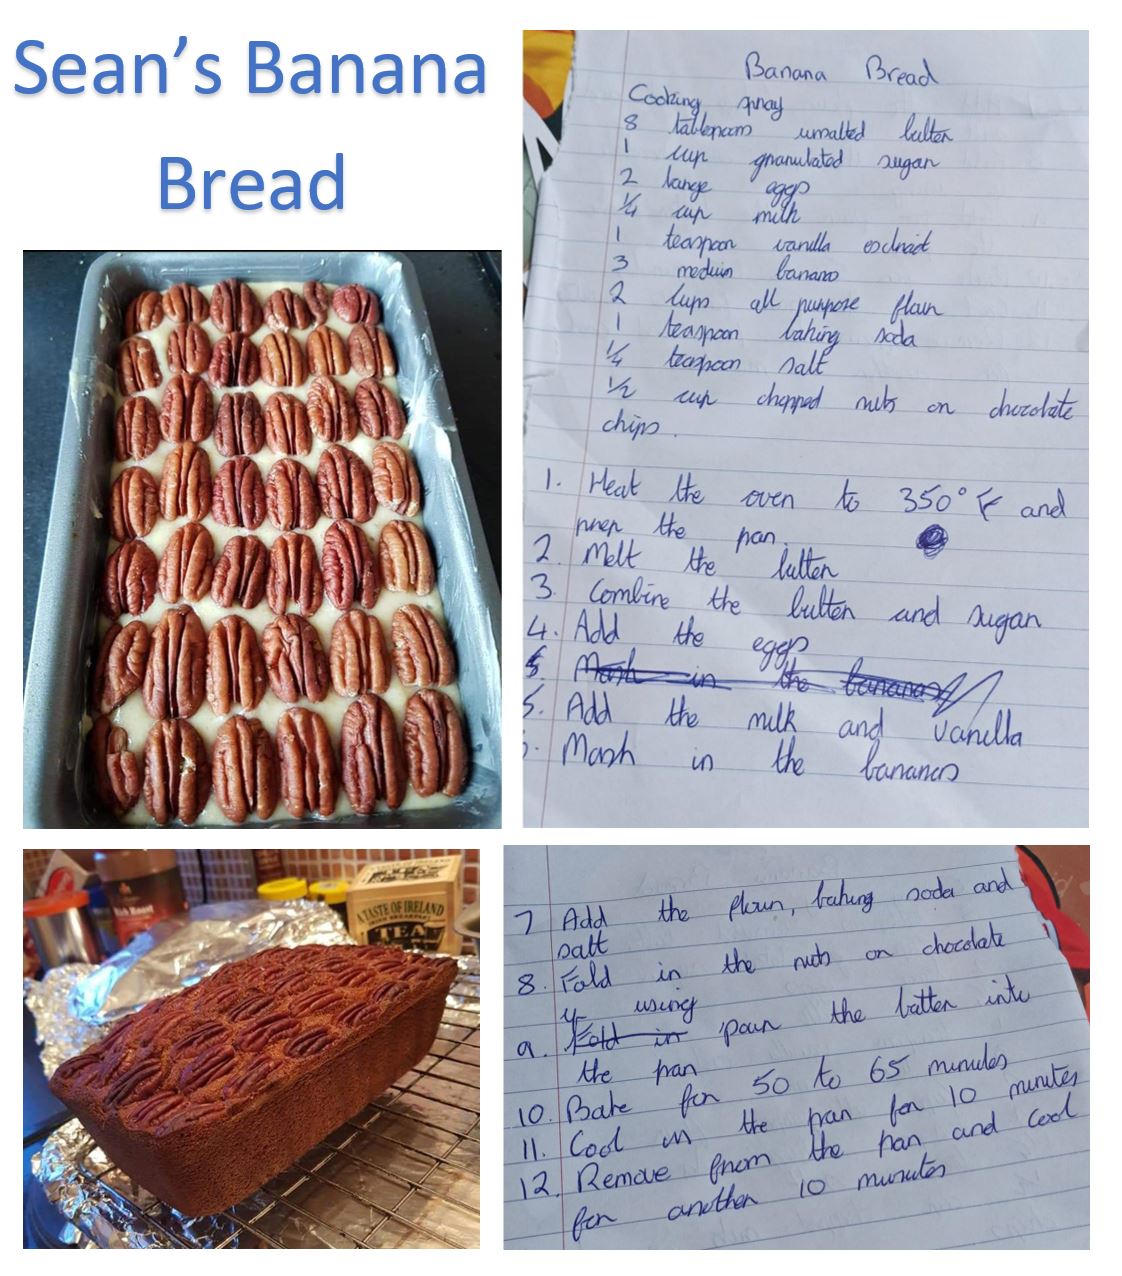 Sean's Banana
Bread
Banana Bread
Cooking spray
8 tablepoom umsalted butter
1 cup granulated sugar
2 large eggs
1/4 cup milk
1 teaspoon vanilla extract
3 meduim bananas
2 cups all purpose flour
1 teaspoon baking soda
1/4 teaspoon salt
1/2 cup chopped nuts or chocolate
chips.
1. Heat the oven to 350°F and
prep the pan.
2. Melt the butter
3. Combine the butter and sugar
4. Add the eggs
5. Mash in the bananas
5. Add the milk and vanilla
Mash in the bananas
7 Add the flour, baking soda and
salt
8. Fold in the nuts or chocolate
using
9. Fold in pour the batter into
the pan
10. Bake for 50 to 65 minutes
11. Cool in the pan for 10 minutes
12. Remove from the pan and cool
for another 10 minutes
A TASTE OF IRELAND
IRISH BREAKFAST
TEA